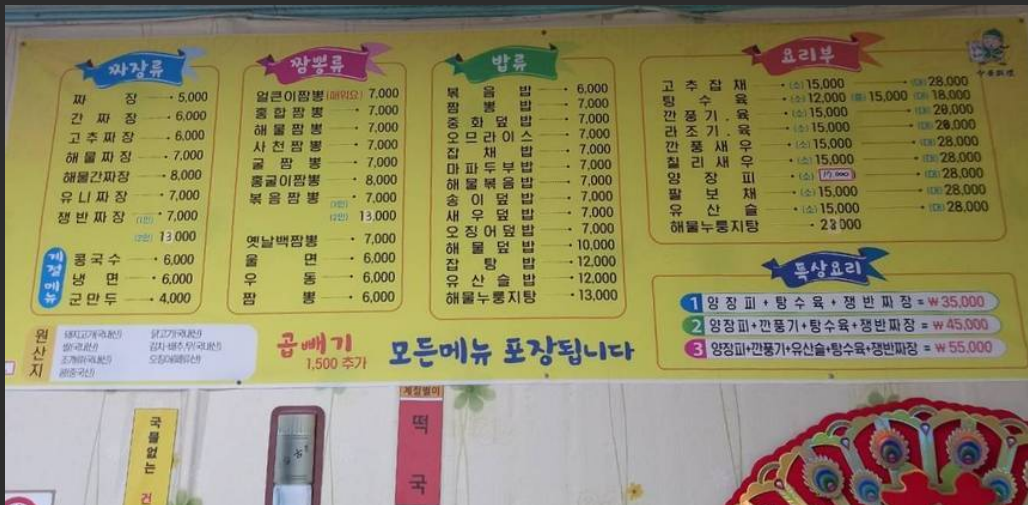 짜장류
짜 장 5,000
간 짜 장 6,000
고추짜장 6,000
해물짜장 7,000
해물간짜장 8,000
유니짜장 7,000
쟁반짜장 (1인) 7,000
(2인) 13,000
계절메뉴
콩국수 6,000
냉 면 6,000
군만두 4,000
짬뽕류
얼큰이짬뽕(매워요) 7,000
홍합짬뽕 7,000
해물짬뽕 7,000
사천짬뽕 7,000
굴 짬 뽕 7,000
홍굴이짬뽕 8,000
볶음짬뽕 (1인) 7,000
(2인) 13,000
옛날백짬뽕 7,000
울 면 6,000
우 동 6,000
짬 뽕 6,000
밥류
볶 음 밥 6,000
짬 뽕 밥 7,000
중화덮밥 7,000
오므라이스 7,000
잡 채 밥 7,000
마파두부밥 7,000
해물볶음밥 7,000
송이덮밥 7,000
새우덮밥 7,000
오징어덮밥 7,000
해물덮밥 10,000
잡 탕 밥 12,000
유산슬밥 12,000
해물누룽지탕 13,000
요리부
고추잡채 (소) 15,000 (대) 28,000
탕 수 육 (소) 12,000 (중) 15,000 (대) 18,000
깐풍기.육 (소) 15,000 (대) 28,000
라조기.육 (소) 15,000 (대) 28,000
깐풍새우 (소) 15,000 (대) 28,000
칠리새우 (소) 15,000 (대) 28,000
양 장 피 (소) (대) 28,000
팔 보 채 (소) 15,000 (대) 28,000
유 산 슬 (소) 15,000 (대) 28,000
해물누룽지탕 28000
中華料理
특상요리
1 양장피+탕수육+쟁반짜장 = ₩35,000
2 양장피+깐풍기+탕수육+쟁반짜장 = ₩45,000
3 양장피+깐풍기+유산슬+탕수육+쟁반짜장 = ₩55,000
원산지
돼지고기(국내산) 닭고기(국내산)
쌀(국내산) 김치-배추,무(국내산)
조개류(국내산)
콩(중국산)
곱빼기
1,500 추가
모든메뉴 포장됩니다
국물없는
계절별미
떡국